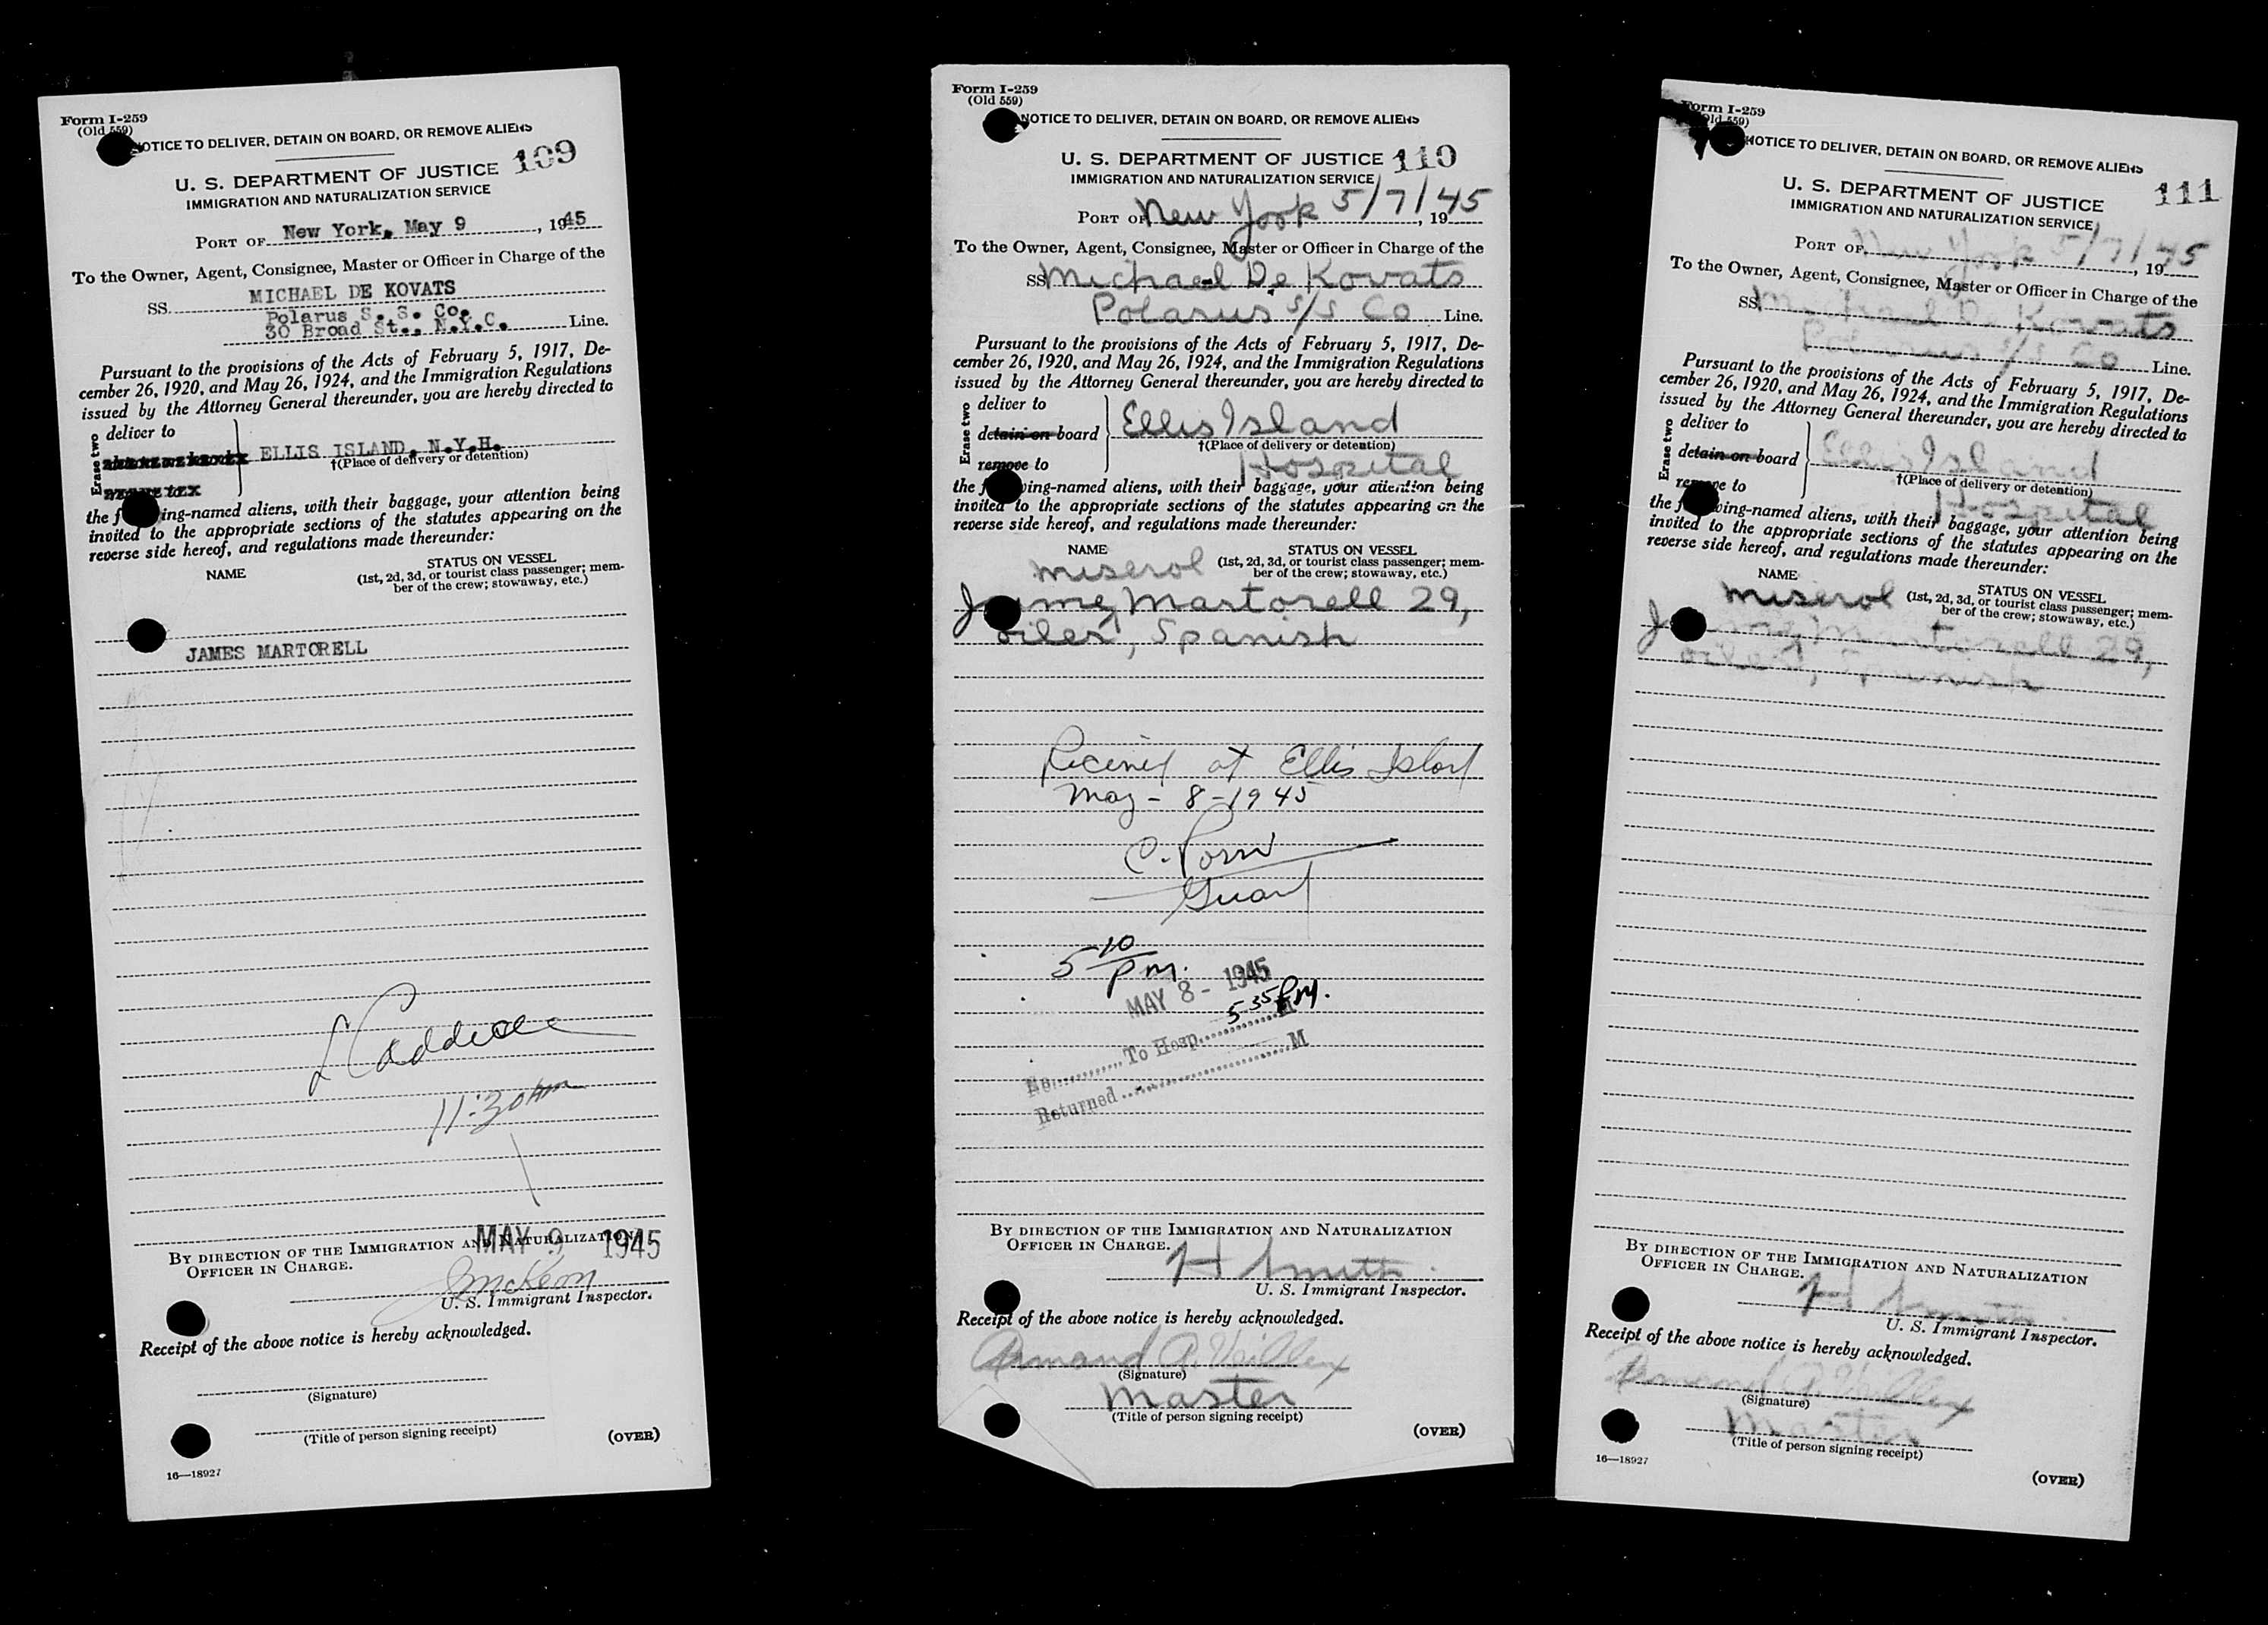 Form I-259
(Old 559)
NOTICE TO DELIVER, DETAIN ON BOARD, OR REMOVE ALIENS
109
U. S. DEPARTMENT OF JUSTICE
IMMIGRATION AND NATURALIZATION SERVICE
PORT OF New York, May 9, 1945
To the Owner, Agent, Consignee, Master or Officer in Charge of the
SS. MICHAEL DE KOVATS
Polarus S. S. Co.
30 Broad St., N.Y.C. Line.
Pursuant to the provisions of the Acts of February 5, 1917, De-
cember 26, 1920, and May 26, 1924, and the Immigration Regulations
issued by the Attorney General thereunder, you are hereby directed to
Erase two
deliver to
ELLIS ISLAND, N.Y.H.
†(Place of delivery or detention)
the f ing-named aliens, with their baggage, your attention being
invited to the appropriate sections of the statutes appearing on the
reverse side hereof, and regulations made thereunder:
NAME
STATUS ON VESSEL
(1st, 2d, 3d, or tourist class passenger; mem-
ber of the crew; stowaway, etc.)
JAMES MARTORELL
11:30 AM
MAY 9 1945
BY DIRECTION OF THE IMMIGRATION AND NATURALIZATION
OFFICER IN CHARGE.
J McKeon
U. S. Immigrant Inspector.
Receipt of the above notice is hereby acknowledged.
(Signature)
(Title of person signing receipt)
(OVER)
16—18927
Form I-259
(Old 559)
NOTICE TO DELIVER, DETAIN ON BOARD, OR REMOVE ALIENS
U. S. DEPARTMENT OF JUSTICE 110
IMMIGRATION AND NATURALIZATION SERVICE
PORT OF New York 5/7/45, 19
To the Owner, Agent, Consignee, Master or Officer in Charge of the
SS Michael De Kovats
Polarus S/S Co Line.
Pursuant to the provisions of the Acts of February 5, 1917, De-
cember 26, 1920, and May 26, 1924, and the Immigration Regulations
issued by the Attorney General thereunder, you are hereby directed to
Erase two
deliver to
detain on board
remove to
Ellis Island
†(Place of delivery or detention)
Hospital
the f wing-named aliens, with their baggage, your attention being
invited to the appropriate sections of the statutes appearing on the
reverse side hereof, and regulations made thereunder:
NAME
STATUS ON VESSEL
(1st, 2d, 3d, or tourist class passenger; mem-
ber of the crew; stowaway, etc.)
Miserol
J ime Martorell 29,
oiler, Spanish
Received at Ellis Island
May - 8 - 1945
Guard
5 10 pm.
MAY 8 - 1945
5 35 P.M.
No. To Hosp. M
Returned M
BY DIRECTION OF THE IMMIGRATION AND NATURALIZATION
OFFICER IN CHARGE.
H Smith
U. S. Immigrant Inspector.
Receipt of the above notice is hereby acknowledged.
Armand
(Signature)
Master
(Title of person signing receipt)
(OVER)
Form I-259
(Old 559)
NOTICE TO DELIVER, DETAIN ON BOARD, OR REMOVE ALIENS
111
U. S. DEPARTMENT OF JUSTICE
IMMIGRATION AND NATURALIZATION SERVICE
PORT OF New York 5/7/45, 19
To the Owner, Agent, Consignee, Master or Officer in Charge of the
SS. Michael De Kovats
Polarus S/S Co Line.
Pursuant to the provisions of the Acts of February 5, 1917, De-
cember 26, 1920, and May 26, 1924, and the Immigration Regulations
issued by the Attorney General thereunder, you are hereby directed to
Erase two
deliver to
detain on board
remove to
Ellis Island
†(Place of delivery or detention)
Hospital
the f wing-named aliens, with their baggage, your attention being
invited to the appropriate sections of the statutes appearing on the
reverse side hereof, and regulations made thereunder:
NAME
STATUS ON VESSEL
(1st, 2d, 3d, or tourist class passenger; mem-
ber of the crew; stowaway, etc.)
Miserol
J ime Martorell 29,
oiler, Spanish
BY DIRECTION OF THE IMMIGRATION AND NATURALIZATION
OFFICER IN CHARGE.
H Smith
U. S. Immigrant Inspector.
Receipt of the above notice is hereby acknowledged.
Armand
(Signature)
Master
(Title of person signing receipt)
16—18927
(OVER)